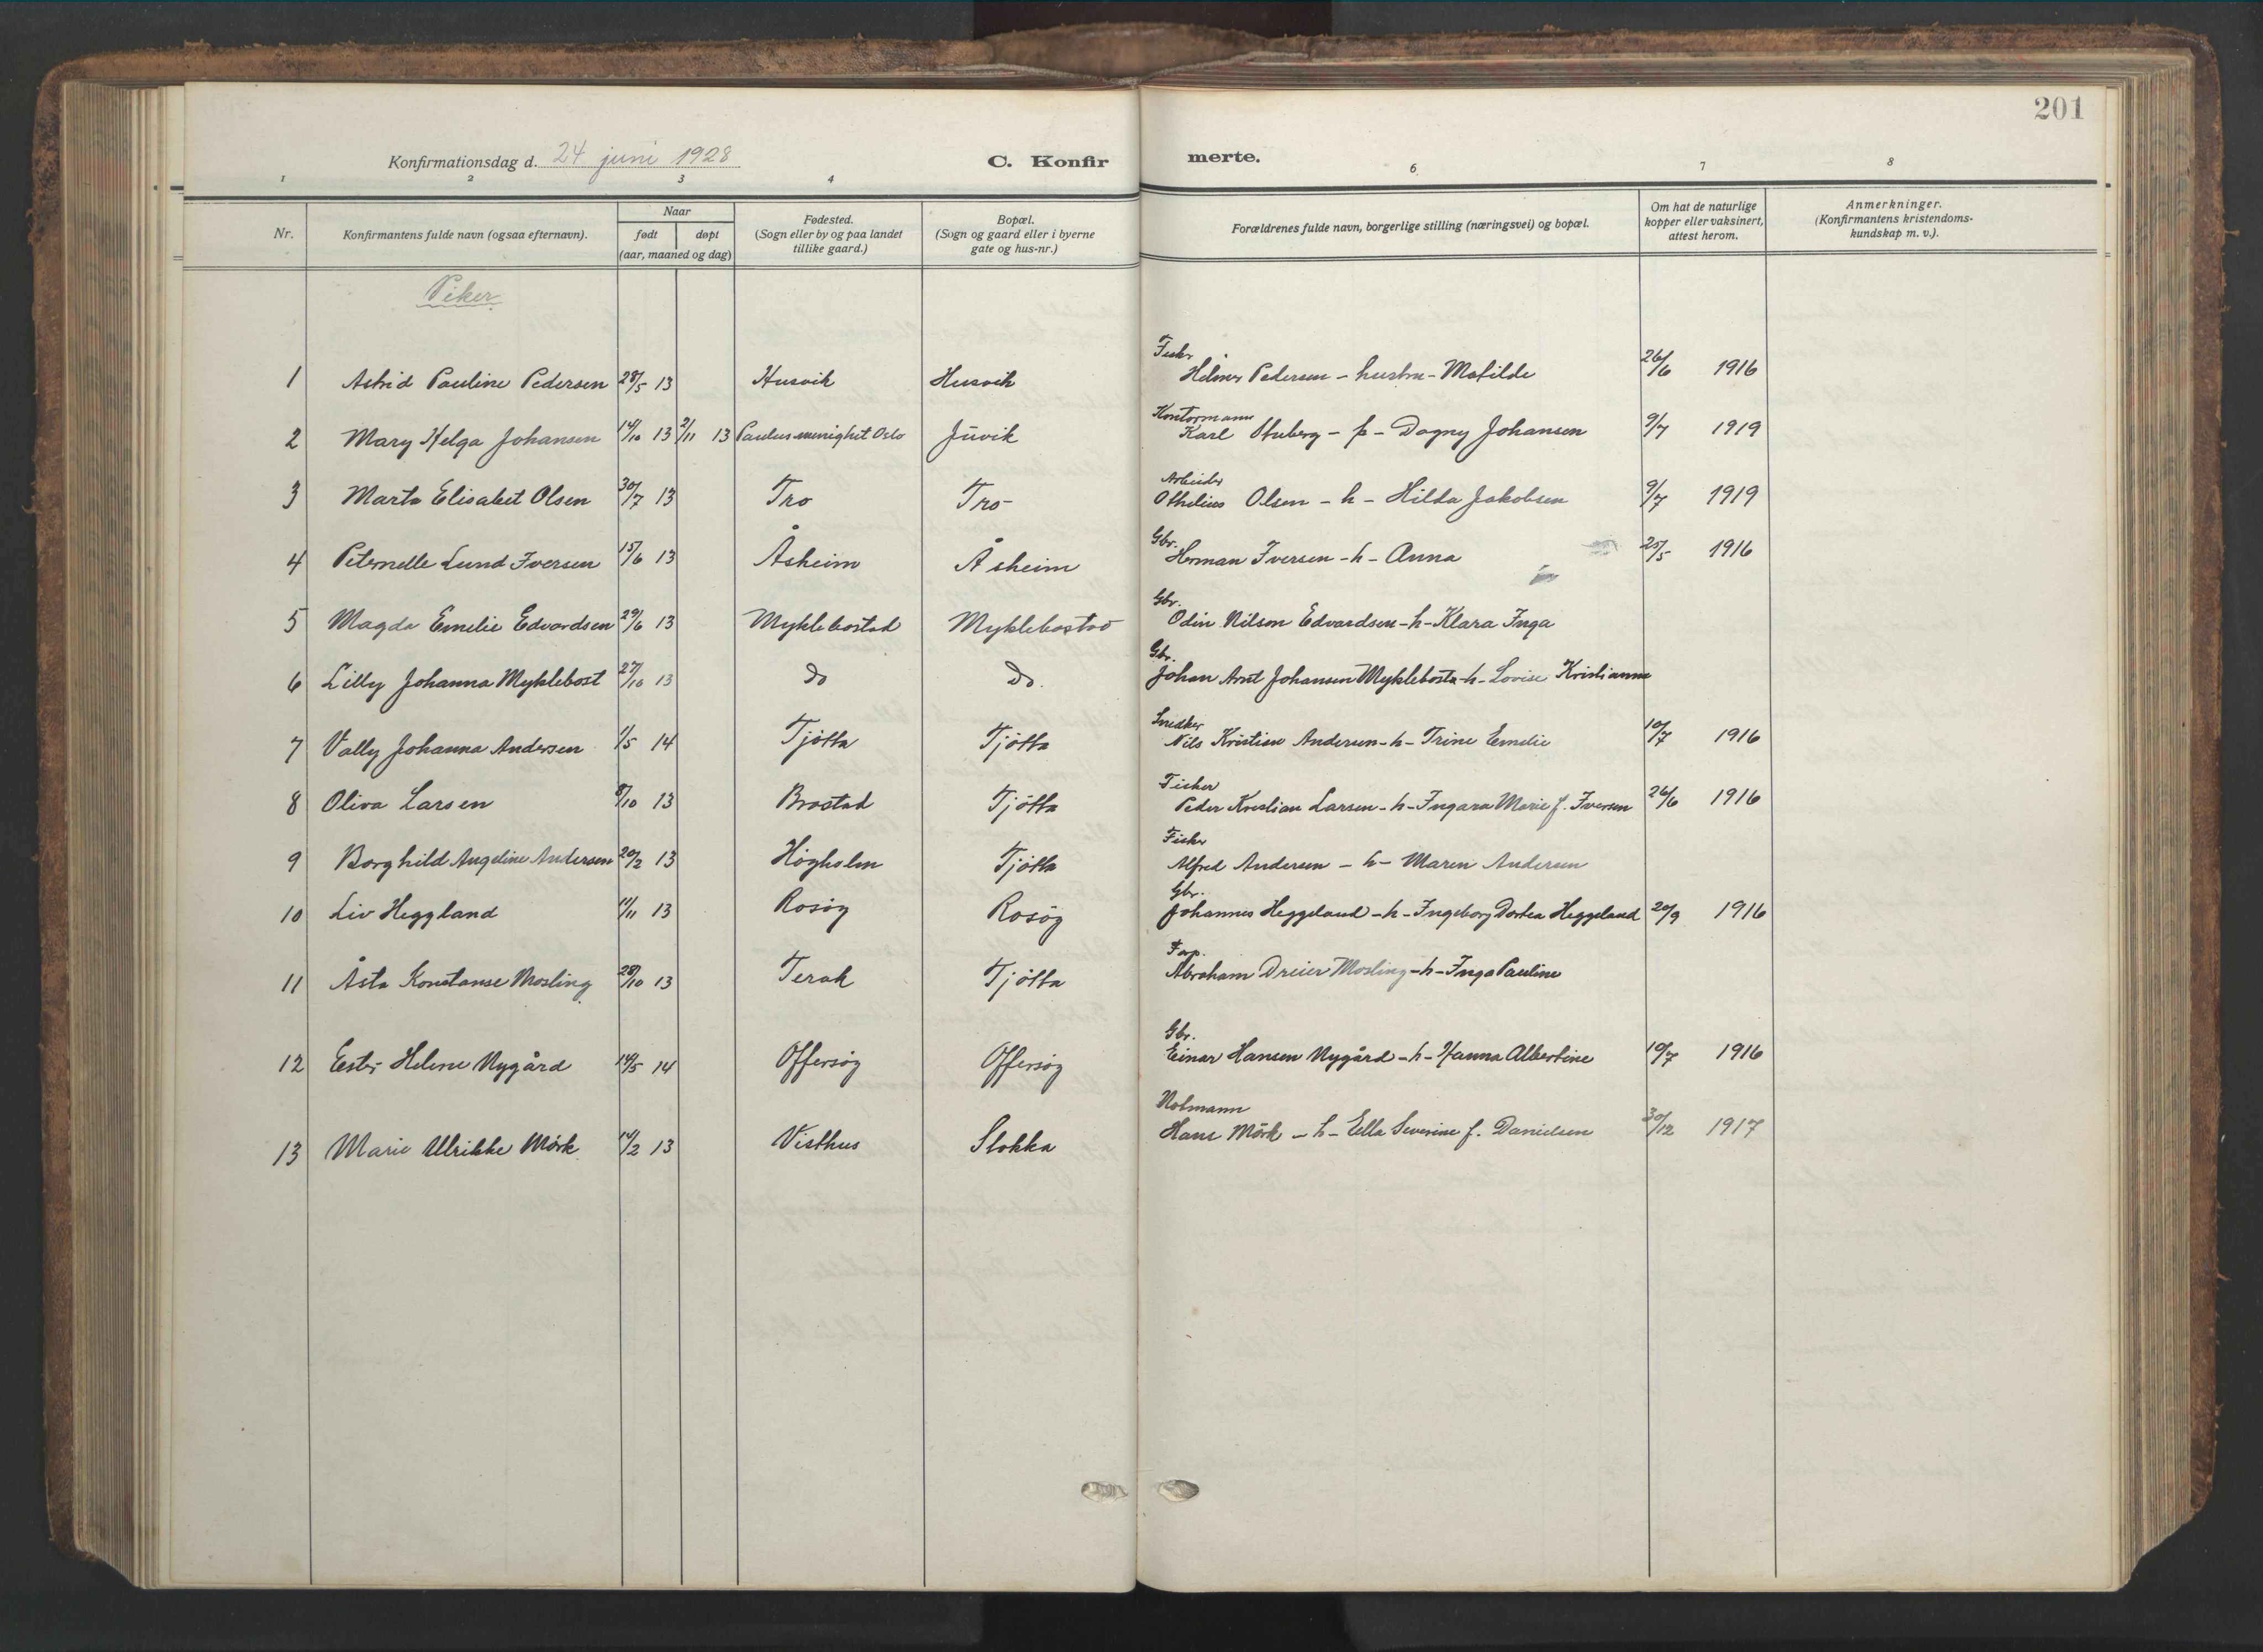 201
Konfirmationsdag d. 24 juni 1928
C. Konfirmerte.
1 2 3 4 6 7 8
Nr. Konfirmantens fulde navn (ogsaa efternavn). Naar født døpt (aar, maaned og dag) Fødested. (Sogn eller by og paa landet tillike gaard.) Bopæl. (Sogn og gaard eller i byerne gate og hus-nr.) Forældrenes fulde navn, borgerlige stilling (næringsvei) og bopæl. Om hat de naturlige kopper eller vaksinert, attest herom. Anmerkninger. (Konfirmantens kristendoms-kundskap m. v.).
Piker
1 Astrid Pauline Pedersen 28/5 13 Husvik Husvik Fisker Helmer Pedersen - hustru - Matilde 26/6 1916
2 Mary Helga Johansen 14/10 13 2/11 13 Paulus menighet Oslo Juvik Kontormann Karl - p - Dagny Johansen 9/7 1919
3 Marta Elisabet Olsen 30/7 13 Tro Tro Arbeider Othelius Olsen - h - Hilda Jakobsen 9/7 1919
4 Peternelle Lund Iversen 15/6 13 Åsheim Åsheim Gbr. Herman Iversen - h - Anna 25/5 1916
5 Magda Emelie Edvardsen 29/6 13 Myklebostad Myklebostad Gbr. Odin Nilson Edvardsen - h - Klara Inga
6 Lilly Johanna Myklebost 27/10 13 do do. Gbr. Johan Arnt Johansen Myklebosta - h - Lovise Kristianne
7 Vally Johanna Andersen 1/5 14 Tjötta Tjötta Snedker Nils Kristian Andersen - h - Trine Emelie 10/7 1916
8 Oliva Larsen 8/10 13 Brostad Tjötta Fisker Peder Kristian Larsen - h - Ingara Marie f. Iversen 26/6 1916
9 Borghild Angeline Andersen 20/2 13 Högholm Tjötta Fisker Alfred Andersen - h - Maren Andersen
10 Liv Heggland 11/11 13 Rosöy Rosöy Gbr. Johannes Heggeland - h - Ingeborg Dortea Heggeland 20/9 1916
11 Åsta Konstanse Mosling 28/10 13 Terak Tjötta Forp. Abraham Dreier Mosling - h - Inga Pauline
12 Ester Helene Nygård 14/5 14 Offersöy Offersöy Gbr. Einar Hansen Nygård - h - Hanna Albertine 10/7 1916
13 Marie Ulrikke Mörk 14/2 13 Visthus Stokka Notmann Hans Mörk - h - Ella Severine f. Danielsen 30/12 1917